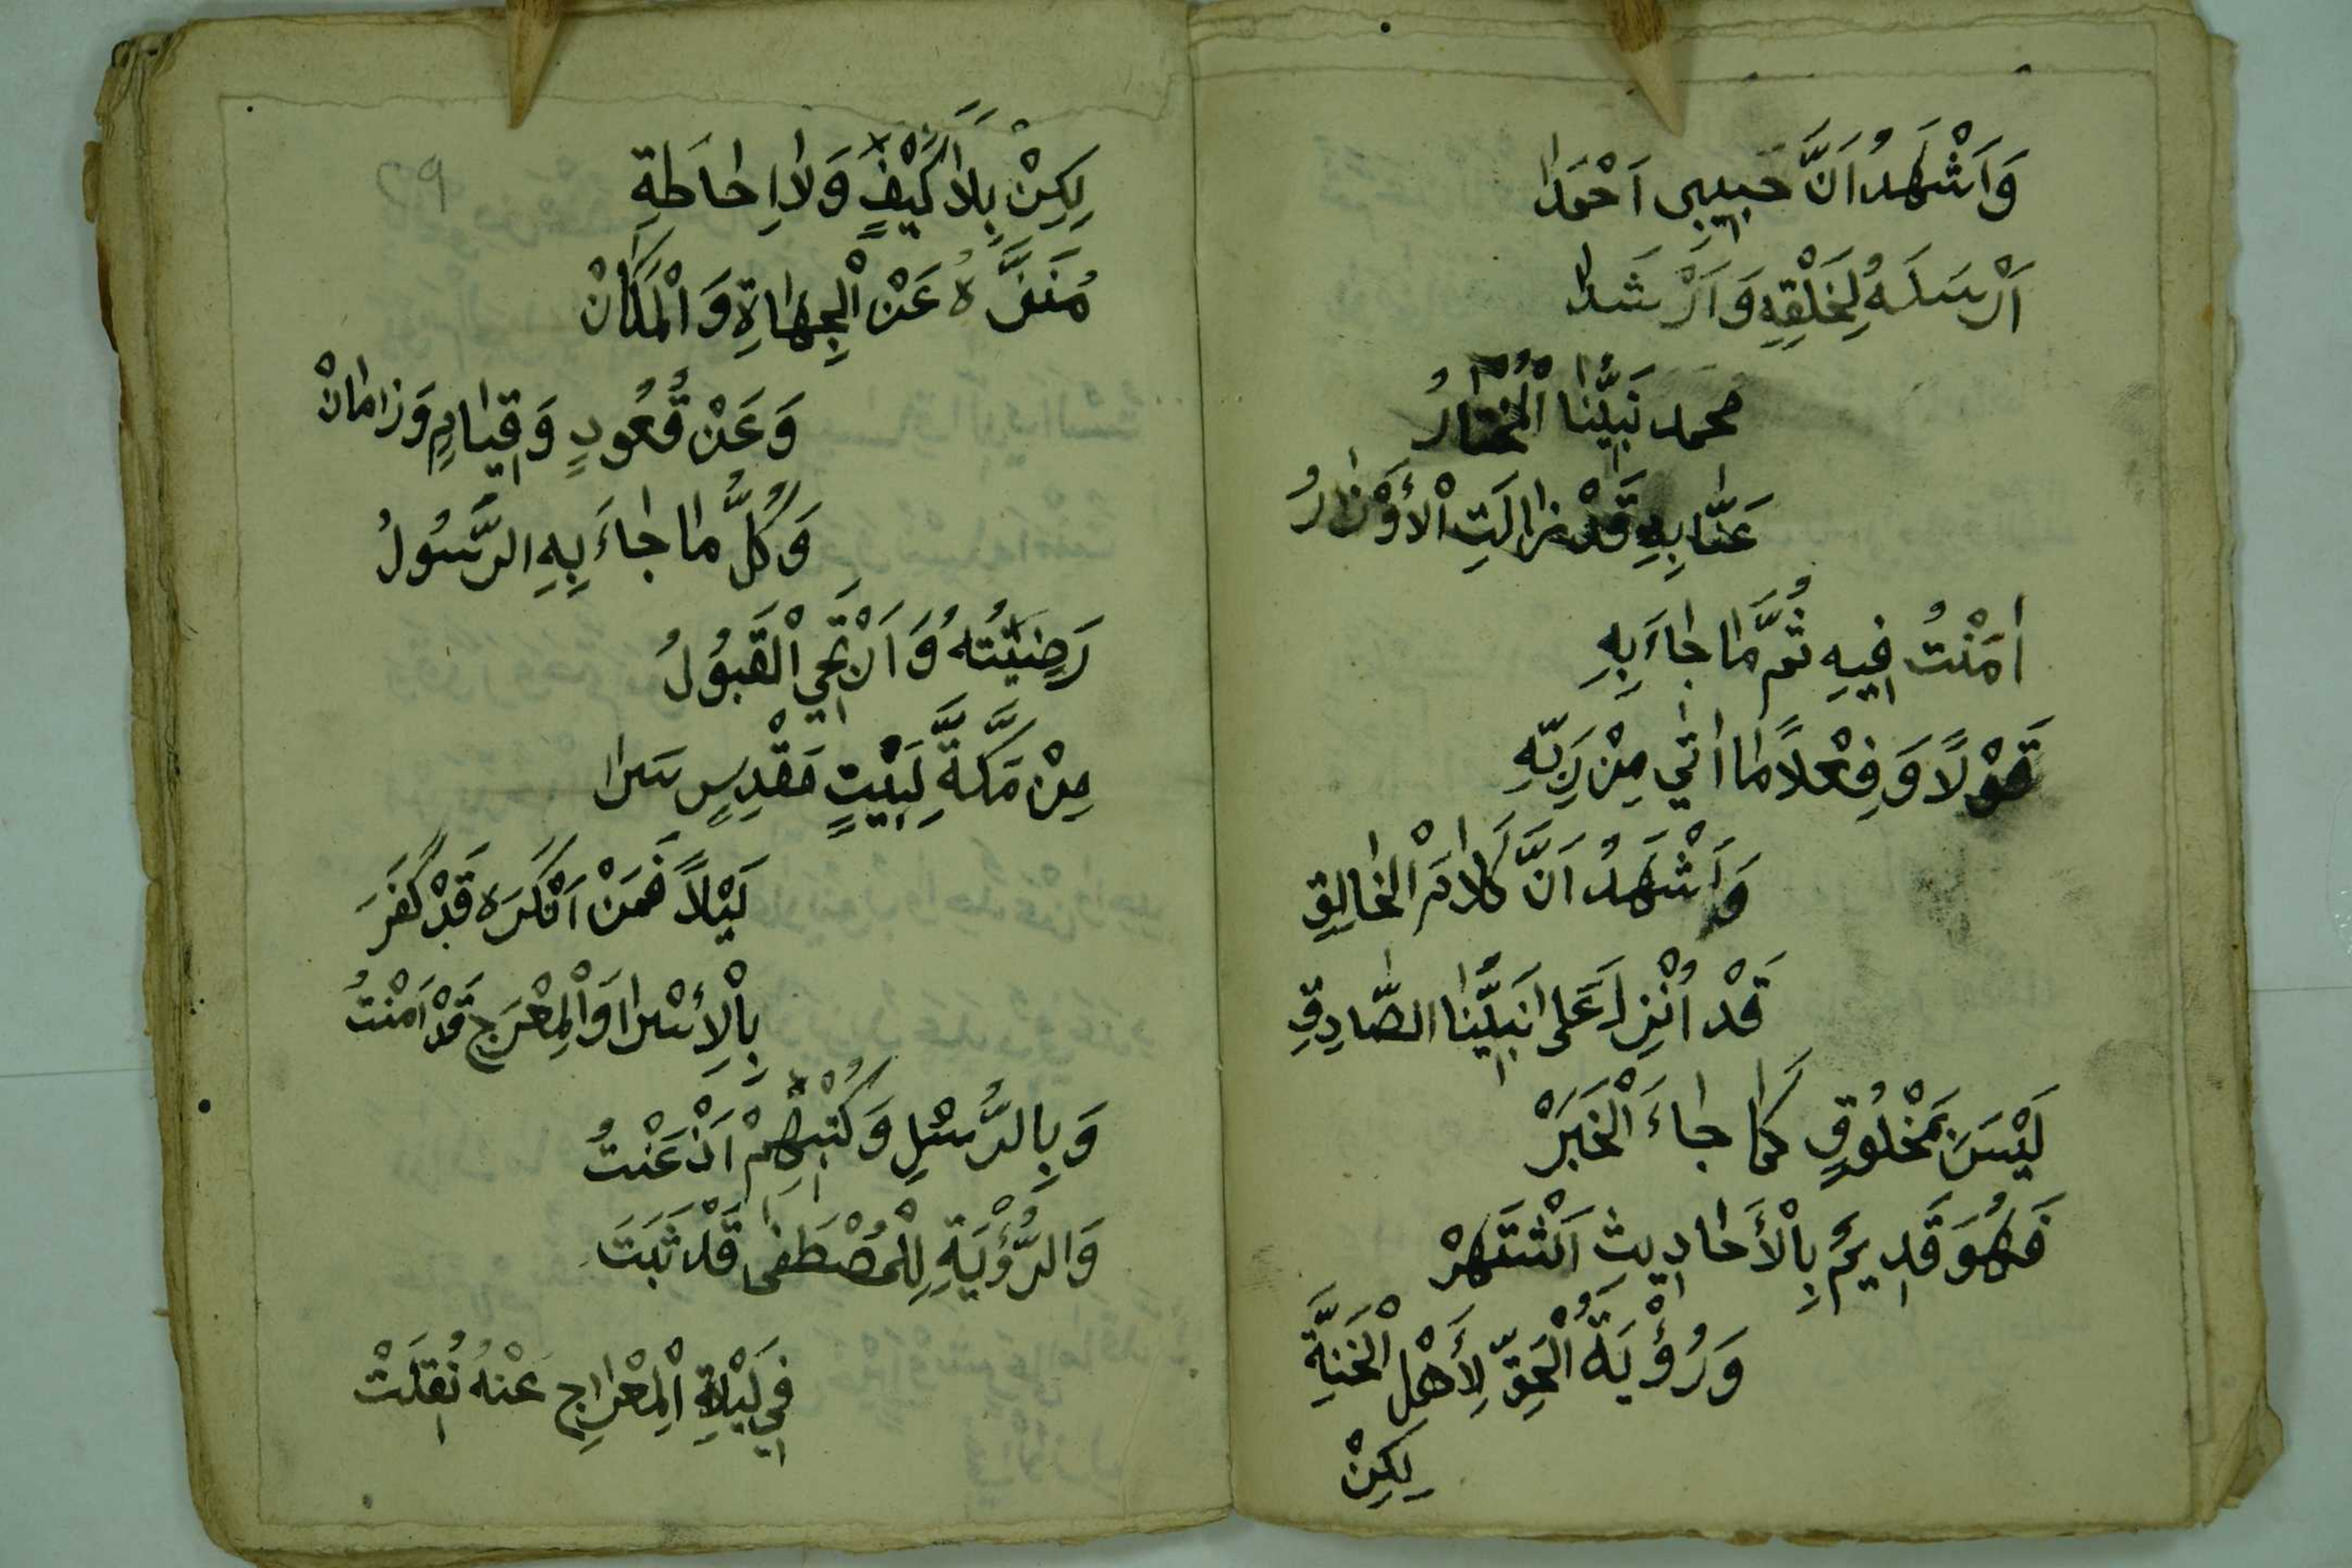 وَاَشْهَدُ اَنَّ حَبِيبِى اَحْمَدَا
اَرْسَلَهُ لِخَلْقِهِ وَاَرْشَدَا
محمد نَبِيُّنَا الْمُخْتَارُ
عَنَّا بِهِ قَدْ زَالَتِ الْأَوْزَارُ
اٰمَنْتُ فِيهِ ثُمَّ مَا جَاءَ بِهِ
قَوْلًا وَفِعْلًا مَا اَتٰي مِنْ رَبِّهِ
وَاَشْهَدُ اَنَّ كَلَامَ الْخَالِقِ
قَدْ اُنْزِلَ عَلٰى نَبِيِّنَا الصَّادِقِ
لَيْسَ بِمَخْلُوقٍ كَمَا جَاءَ الْخَبَرْ
فَهُوَ قَدِيمٌ بِالْأَحَادِيثِ اَشْتَهَرْ
وَرُؤْيَةُ الْحَقِّ لِأَهْلِ الْجَنَّةِ
لِكِنْ
29
لِكِنْ بِلَا كَيْفٍ وَلَا اِحَاطَةِ
مُنَزَّهُ عَنْ الْجِهَاةِ وَالْمَكَانْ
وَعَنْ قُعُودٍ وَقِيَامٍ وَزَامَانْ
وَكُلُّ مَا جَاءَ بِهِ الرَّسُولُ
رَضِيْتُهُ وَاَرْتَجِي الْقَبُولُ
مِنْ مَكَّةَ لِبَيْتٍ مَقْدِسٍ سَرَا
لَيْلًا فَمَنْ اَنْكَرَه قَدْ كَفَرَ
بِالْإِسْرَا وَالْمِعْرَجِ قَدْ اٰمَنْتُ
وَبِالرُّسْلِ وَكُتْبِهِمْ اَذْعَنْتُ
وَالرُّؤْيَةِ لِلْمُصْطَفٰى قَدْ ثَبَتَ
فِي لَيْلَةِ الْمِعْرَاجِ عَنْهُ نُقِلَتْ